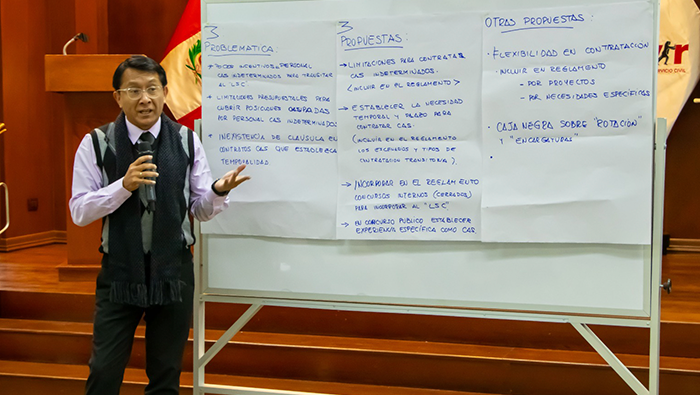 3
PROBLEMATICA:
PERSONAL
CAS INDETERMINADOS PARA TRANSITAR
AL LSC
LIMITACIONES PRESUPUESTALES PARA
CUBRIR POSICIONES
POR PERSONAL CAS INDETERMINADOS
INEXISTENCIA DE CLAUSULA EN
CONTRATOS CAS QUE ESTABLEZCA
TEMPORALIDAD.
3
PROPUESTAS:
LIMITACIONES PARA CONTRATAR
CAS INDETERMINADOS.
(INCLUIR EN EL REGLAMENTO)
ESTABLECER LA NECESIDAD
TEMPORAL Y PLAZO PARA
CONTRATAR CAS.
(INCLUIR EN EL REGLAMENTO
LOS ESCENARIOS Y TIPOS DE
CONTRATACION TRANSITORIA).
INCORPORAR EN EL REGLAMENTO
CONCURSOS INTERNOS (CERRADOS)
PARA INCORPORAR AL "LSC"
EN CONCURSO PUBLICO ESTABLECER
EXPERIENCIA ESPECÍFICA COMO CAR
OTRAS PROPUESTAS:
• FLEXIBILIDAD EN CONTRATACIÓN
INCLUIR EN REGLAMENTO
- POR PROYECTOS
- POR NECESIDADES ESPECÍFICAS
• CAJA NEGRA SOBRE "ROTACIÓN"
Y "ENCARGATURAS"